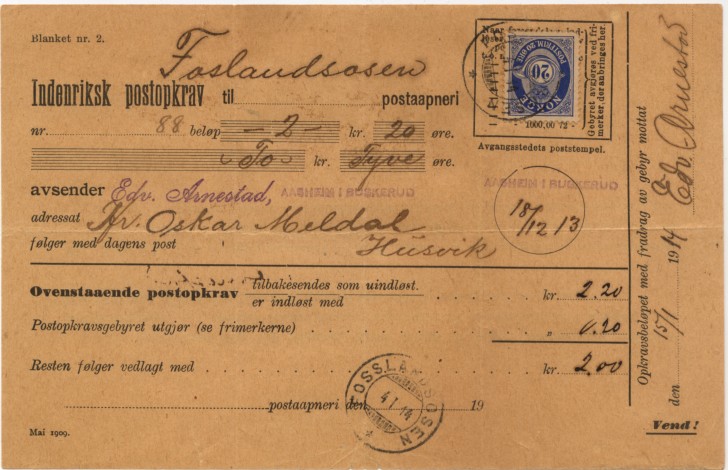 Blanket nr. 2.
Foslandsosen
Indenriksk postopkrav til postaapneri
nr. 88 beløp — 2 — kr. 20 øre.
To kr. Tyve øre.
avsender Edv. Arnestad, AASHEIM I BUSKERUD
adressat Hr. Oskar Meldal
følger med dagens post Husvik
merker, der anbringes her.
Gebyret avgjøres ved fri-
POSTFRIM. 20 ØRE
20
NORGE
1000,00 72
Avgangsstedets poststempel.
AASHEIM I BUSKERUD
18/12 13
Ovenstaaende postopkrav tilbakesendes som uindløst.
er indløst med kr. 2.20
Postopkravsgebyret utgjør (se frimerkerne) „ 0.20
Resten følger vedlagt med kr. 2.00
postaapneri den 19
FOSSLANDSOSEN
4 I 14
Mai 1909.
Vend!
Opkravsbeløpet med fradrag av gebyr mottat
den 15/1 1914 Edv. Arnestad